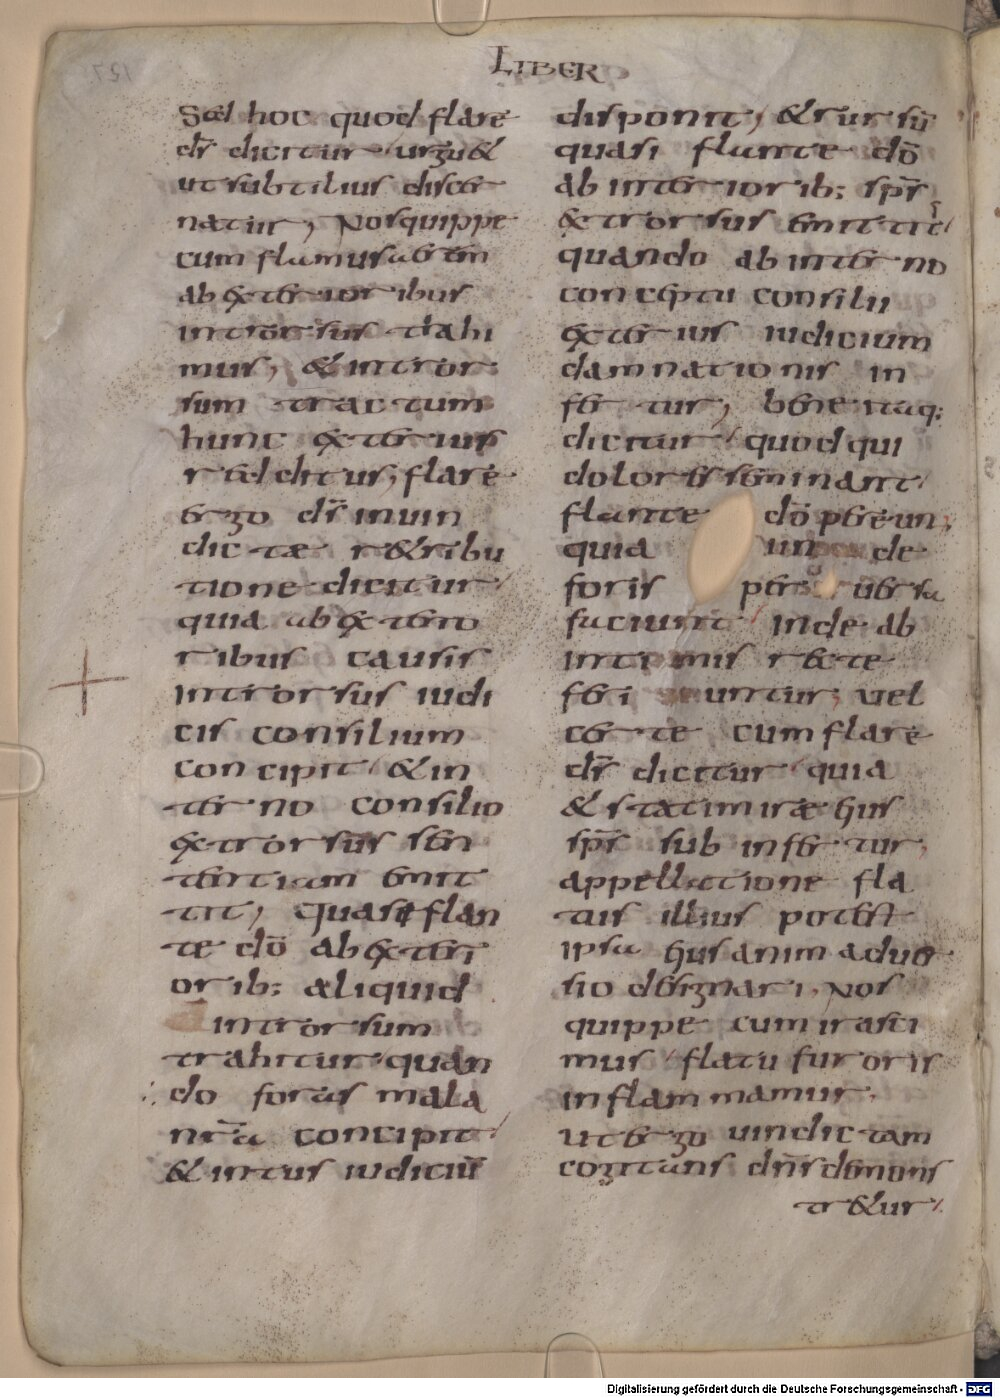 LIBER
Sed hoc quod flare
dr̄ dicitur urgu&
ut subtilius discer
natur, Nos quippe
cum flamus aerem
ab exterioribus
introrsus trahi
mus, & intror
sum tractum
hunc exterius
reddimus, flare
ergo dr̄ in uin
dictae r&ribu
tione dicitur
quia ab extero
ribus causis
introrsus iudi
cis consilium
concipit & in
terno consilio
extrorsus sen
tentiam emit
tit, Quasi flan
te dō ab exteri
orib; aliquid
introrsum
trahitur quan
do foras mala
nr̄a concipit
& intus iudiciū
disponit, & rursū
quasi flante dō
ab interiorib; sp̄s
extrorsus emittit
quando ab interno
conceptu consilii
exterius iudicium
damnationis in
fertur, bene itaq;
dicitur quod qui
dolores seminant
flante dō pereun,
quia un de
foris peruersa
faciunt inde ab
intimis recte
feri untur, uel
certe cum flare
dr̄ dicitur quia
& statim irae eius
sp̄s sub infertur,
appellatione fla
tus illius potest
ipsa eius animaduer
sio designari, Nos
quippe cum irasci
mus flatu furoris
inflammamur,
ut ergo uindictam
cogitans dn̄s demons
tr&ur
Digitalisierung gefördert durch die Deutsche Forschungsgemeinschaft - DFG